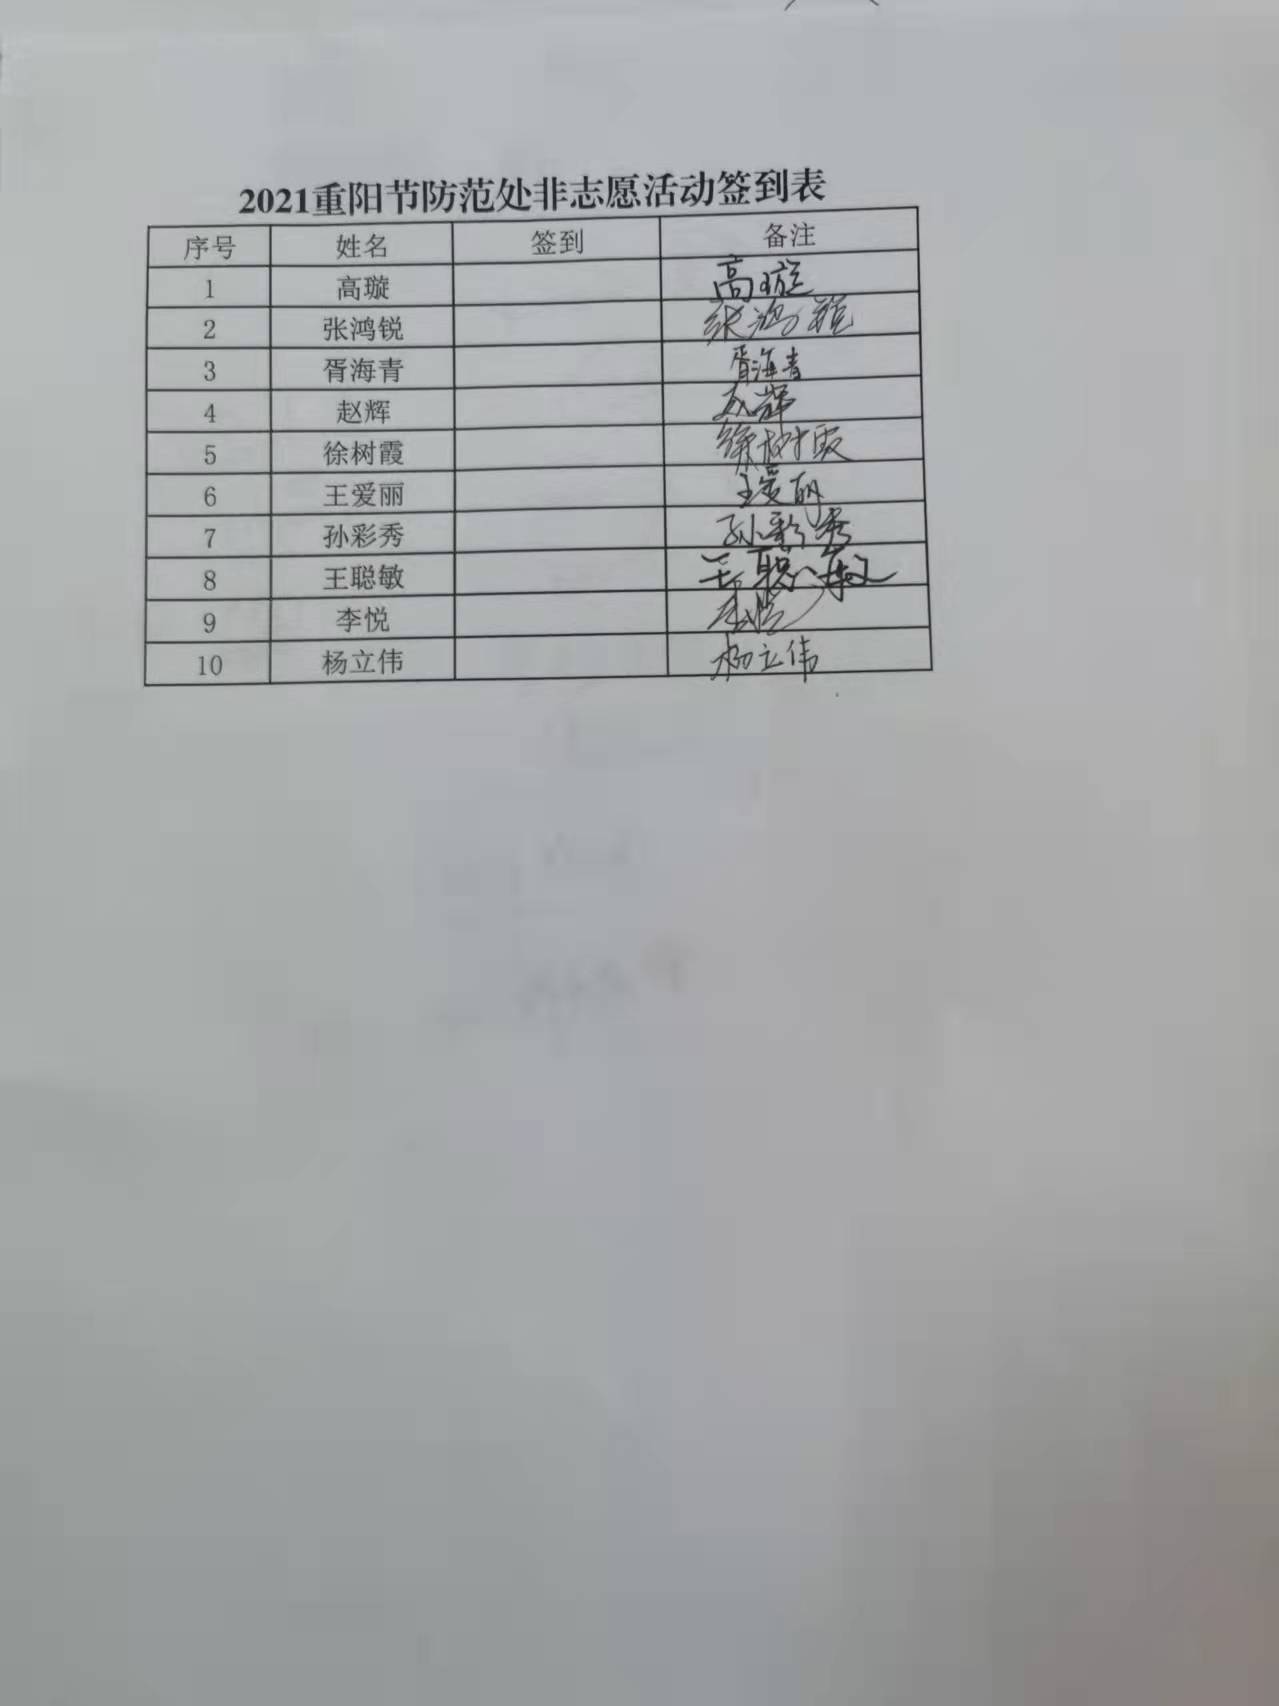 2021重阳节防范处非志愿活动签到表
序号 姓名 签到 备注
1 高璇 高璇
2 张鸿锐 张鸿锐
3 胥海青 胥海青
4 赵辉 赵辉
5 徐树霞 徐树霞
6 王爱丽 王爱丽
7 孙彩秀 孙彩秀
8 王聪敏 王聪敏
9 李悦 李悦
10 杨立伟 杨立伟